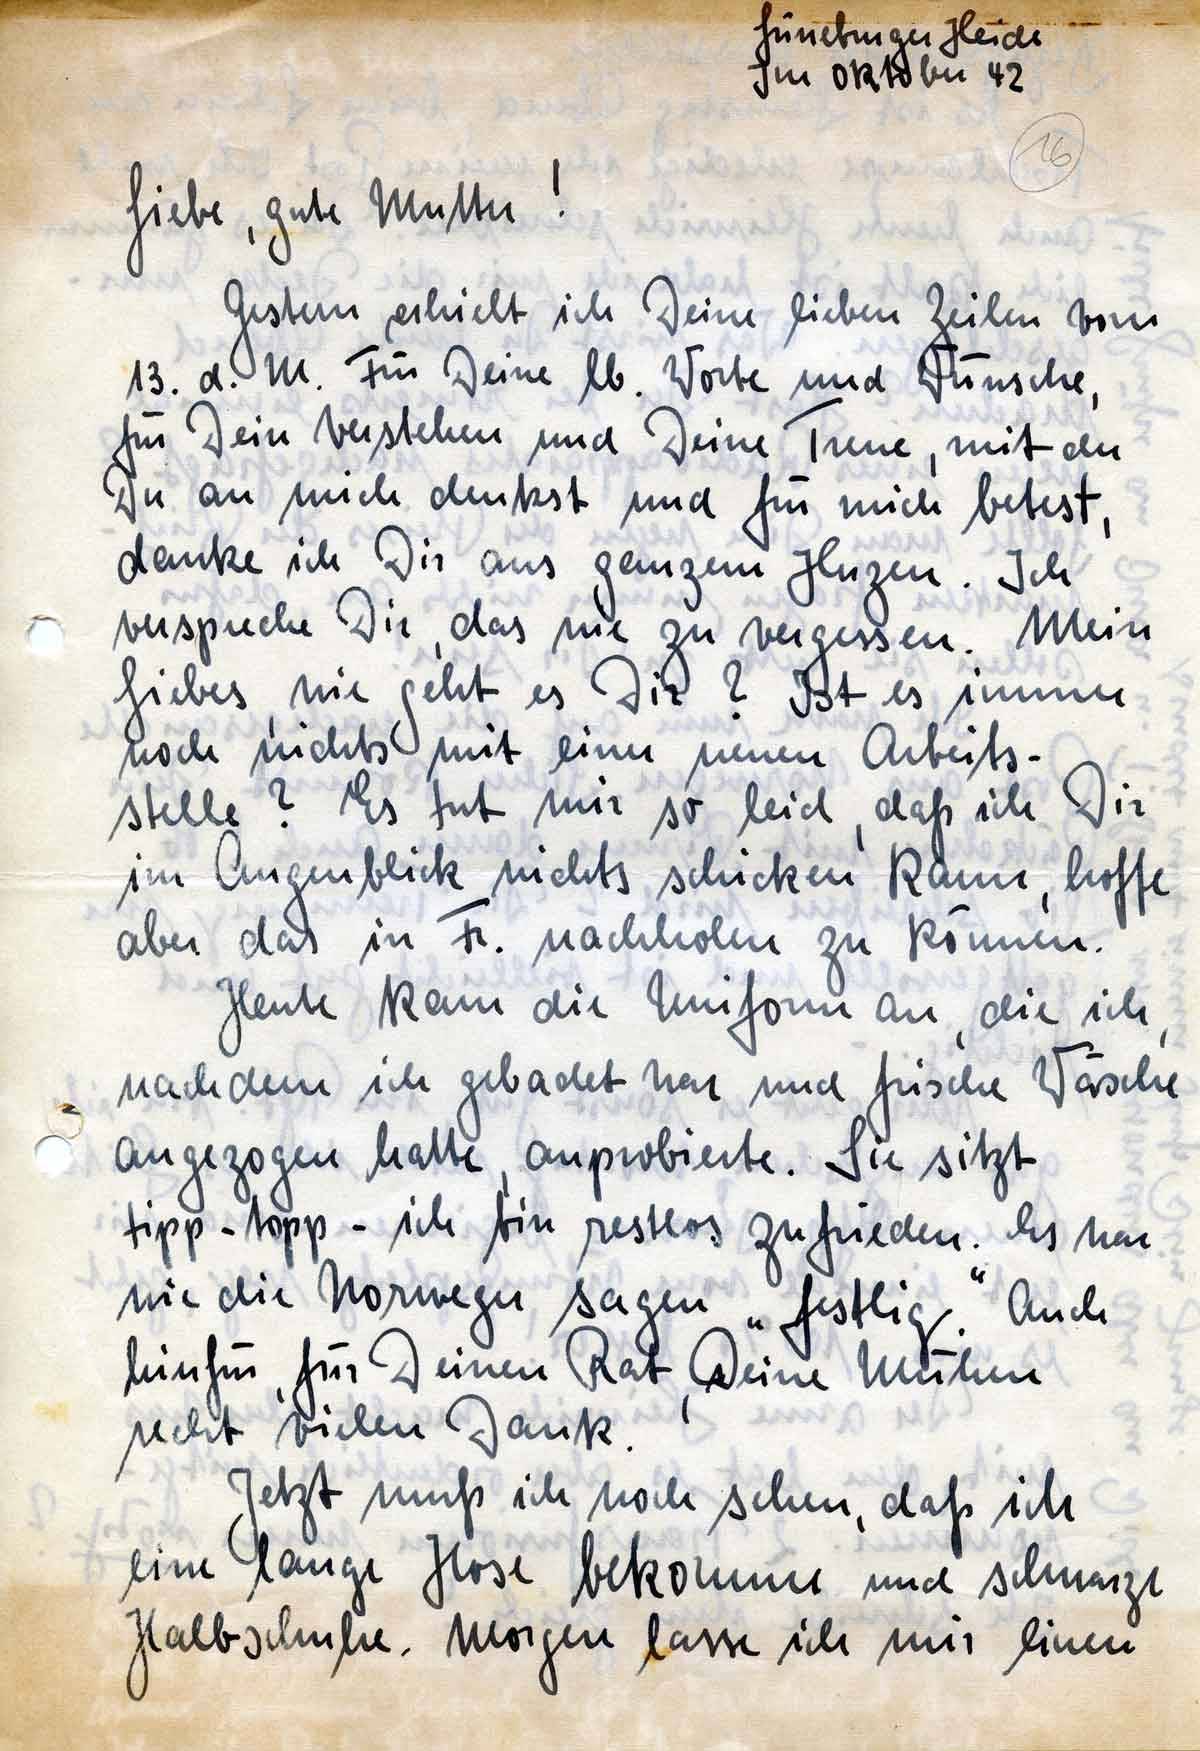 Lüneburger Heide
Im Oktober 42
16
Liebe, gute Mutter!
Gestern erhielt ich Deine lieben Zeilen vom
13. d. M. Für Deine lb. Worte und Wünsche,
für Dein Verstehen und Deine Treue, mit der
Du an mich denkst und für mich betest,
danke ich Dir aus ganzem Herzen. Ich
verspreche Dir, das nie zu vergessen. Mein
Liebes, wie geht es Dir? Ist es immer
noch nichts mit einer neuen Arbeits-
stelle? Es tut mir so leid, daß ich Dir
im Augenblick nichts schicken kann, hoffe
aber das in Fr. nachholen zu können.
Heute kam die Uniform an, die ich,
nachdem ich gebadet war und frische Wäsche
angezogen hatte, anprobierte. Sie sitzt
tipp-topp - ich bin restlos zufrieden. Es war
wie die Norweger sagen „festlig." Auch
hierfür, für Deinen Rat, Deine Mühen
recht vielen Dank.
Jetzt muß ich noch sehen, daß ich
eine lange Hose bekomme und schwarze
Halbschuhe. Morgen lasse ich mir einen